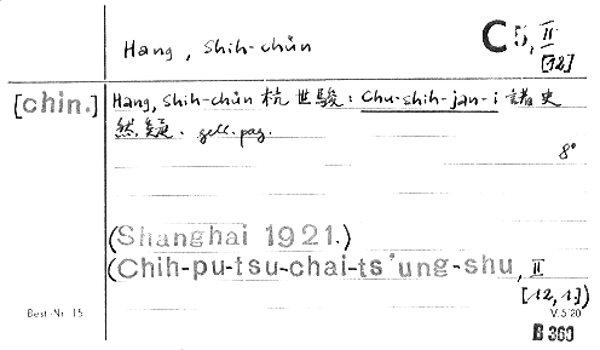 Hang, Shih-chün
C 5, II
[12]
[chin.]
Hang, Shih-chün 杭世駿: Chu-shih-jan-i 諸史
然疑. gell. pag.
8°
(Shanghai 1921.)
(Chih-pu-tsu-chai-ts'ung-shu, II
[12,1])
Best.-Nr. 15
V. 5 20
B 360